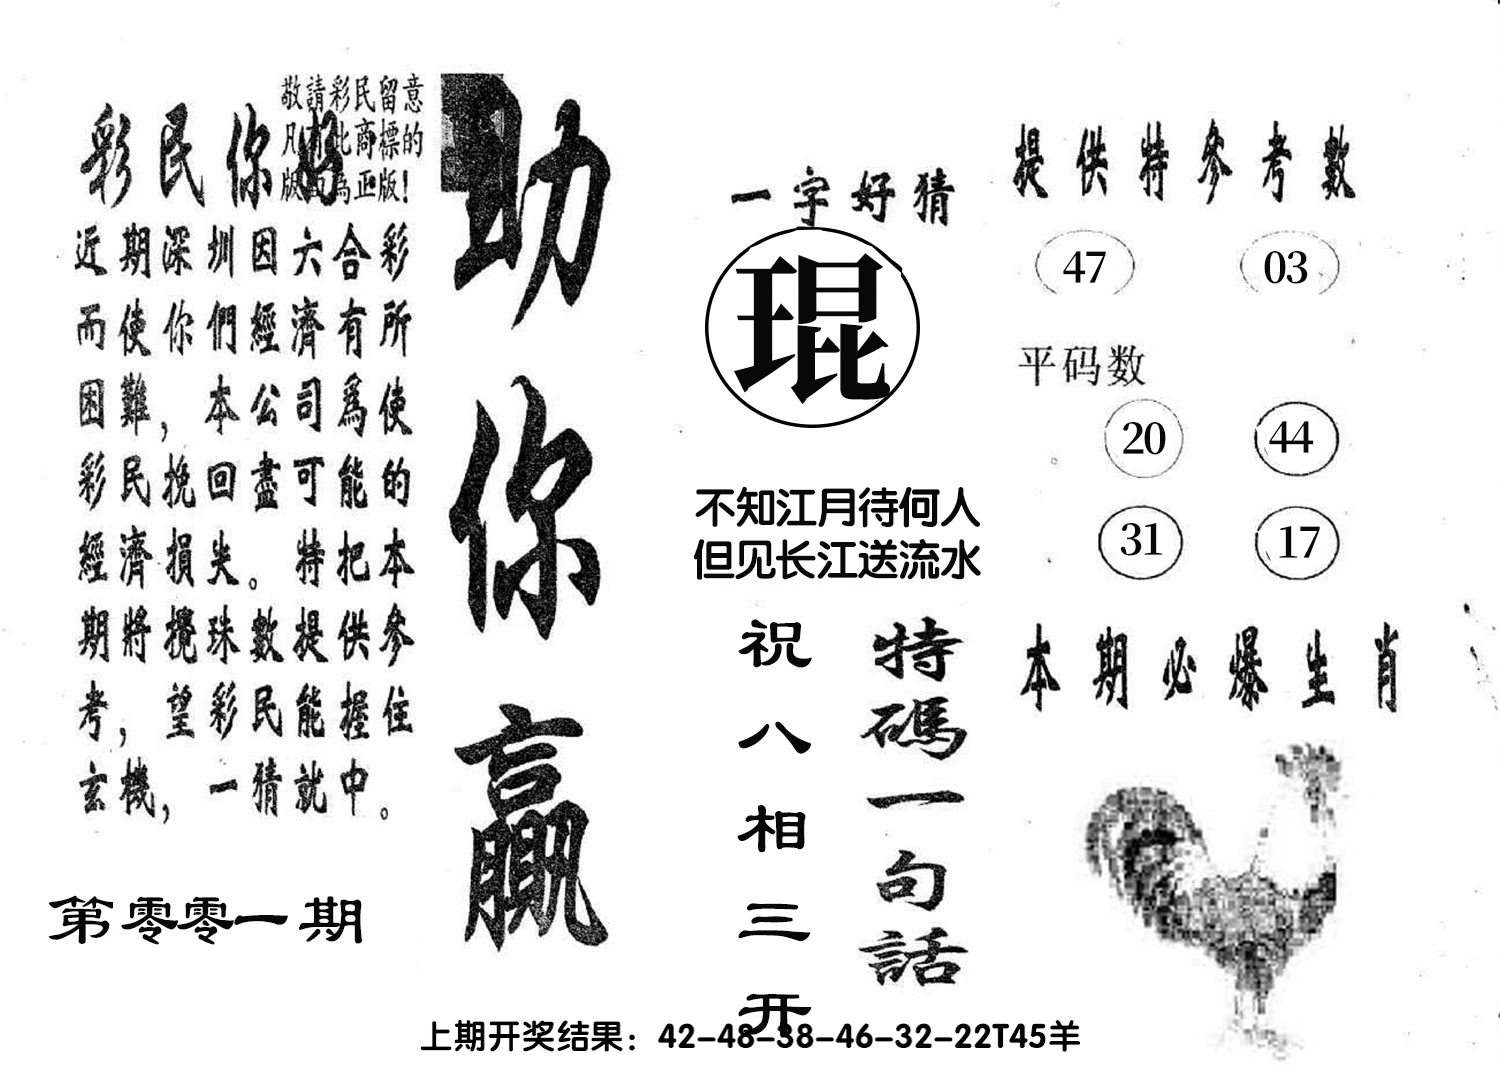 敬請彩民留意
凡有此商標的
版面為正版!
彩民你好
近期深圳因六合彩
而使你們經濟有所
困難，本公司爲使
彩民挽回盡可能的
經濟損失。特把本
期將攪珠數提供參
考，望彩民能握住
玄機，一猜就中。
第零零一期
助你贏
一字好猜
琨
不知江月待何人
但见长江送流水
特碼一句話
祝八相三开
提供特參考數
47 03
平码数
20 44
31 17
本期必爆生肖
上期开奖结果：42-48-38-46-32-22T45羊